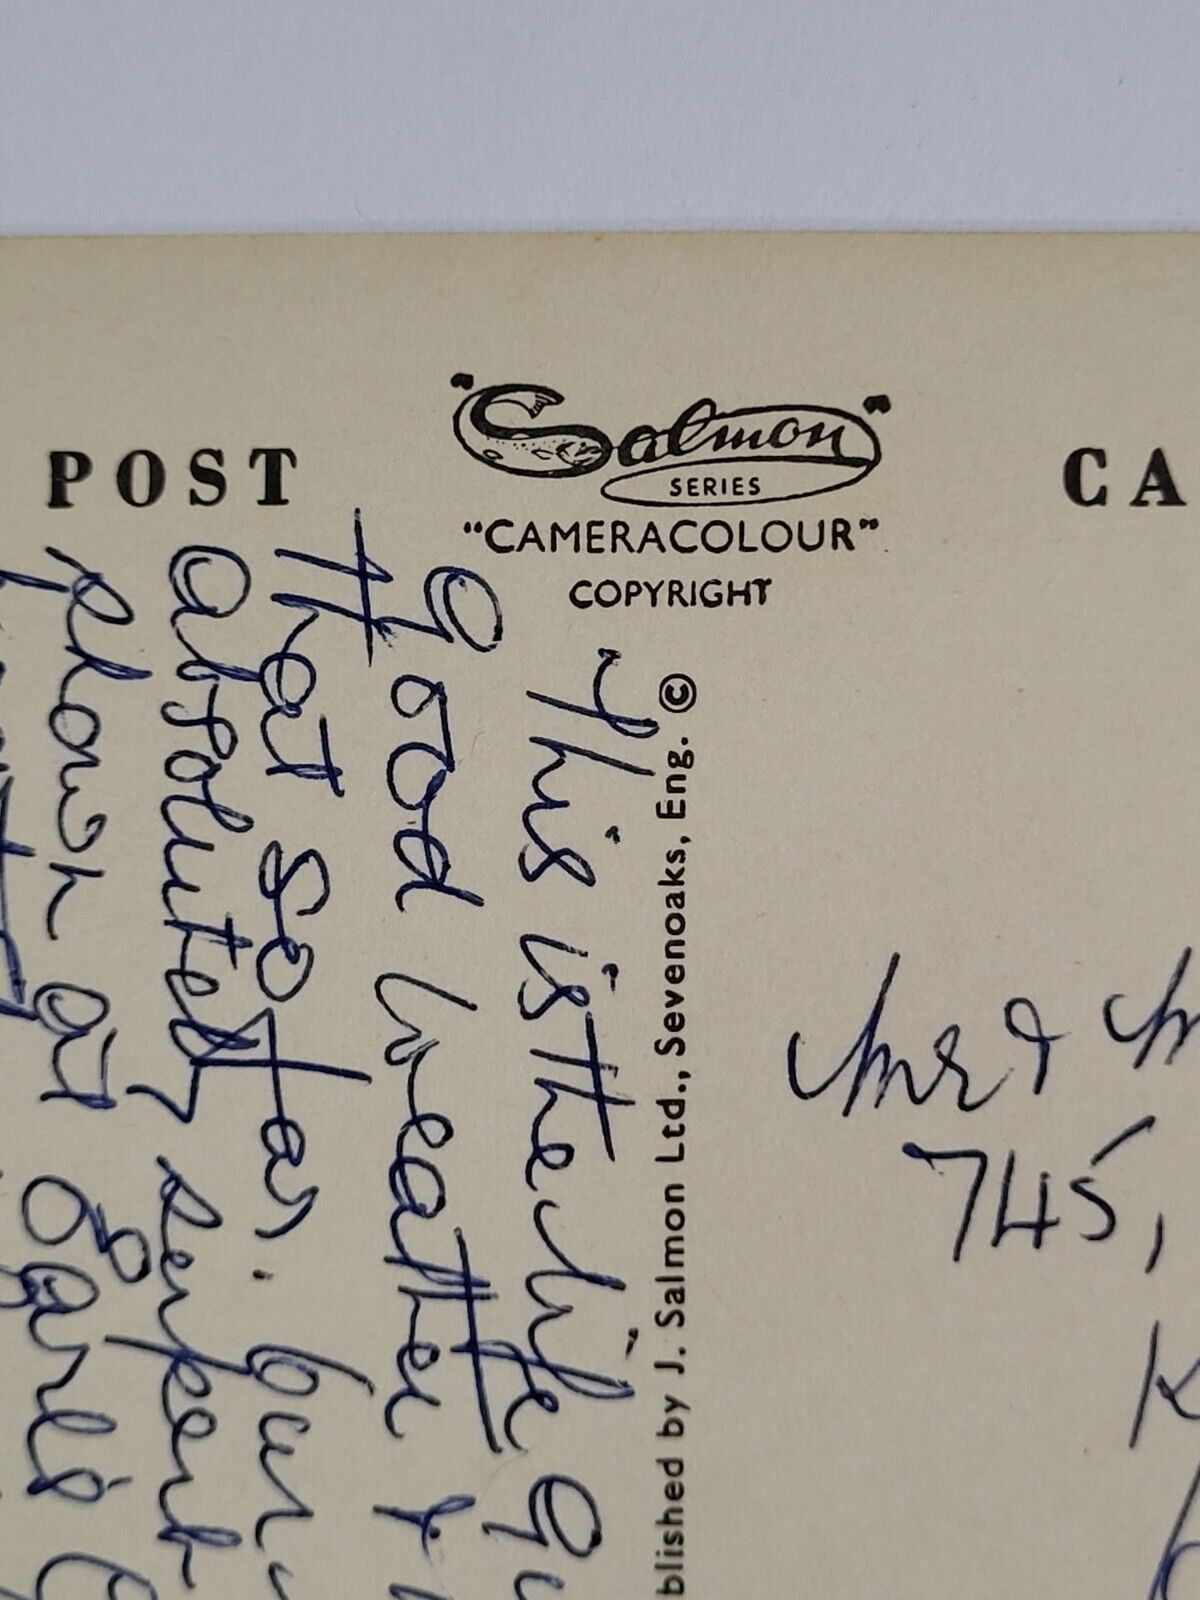 POST
"Salmon"
SERIES
"CAMERACOLOUR"
COPYRIGHT
CA
blished by J. Salmon Ltd., Sevenoaks, Eng. ©
This is the life
Good weather &
that so far.
absolutely
plown at Earls
Mr &
745,
K